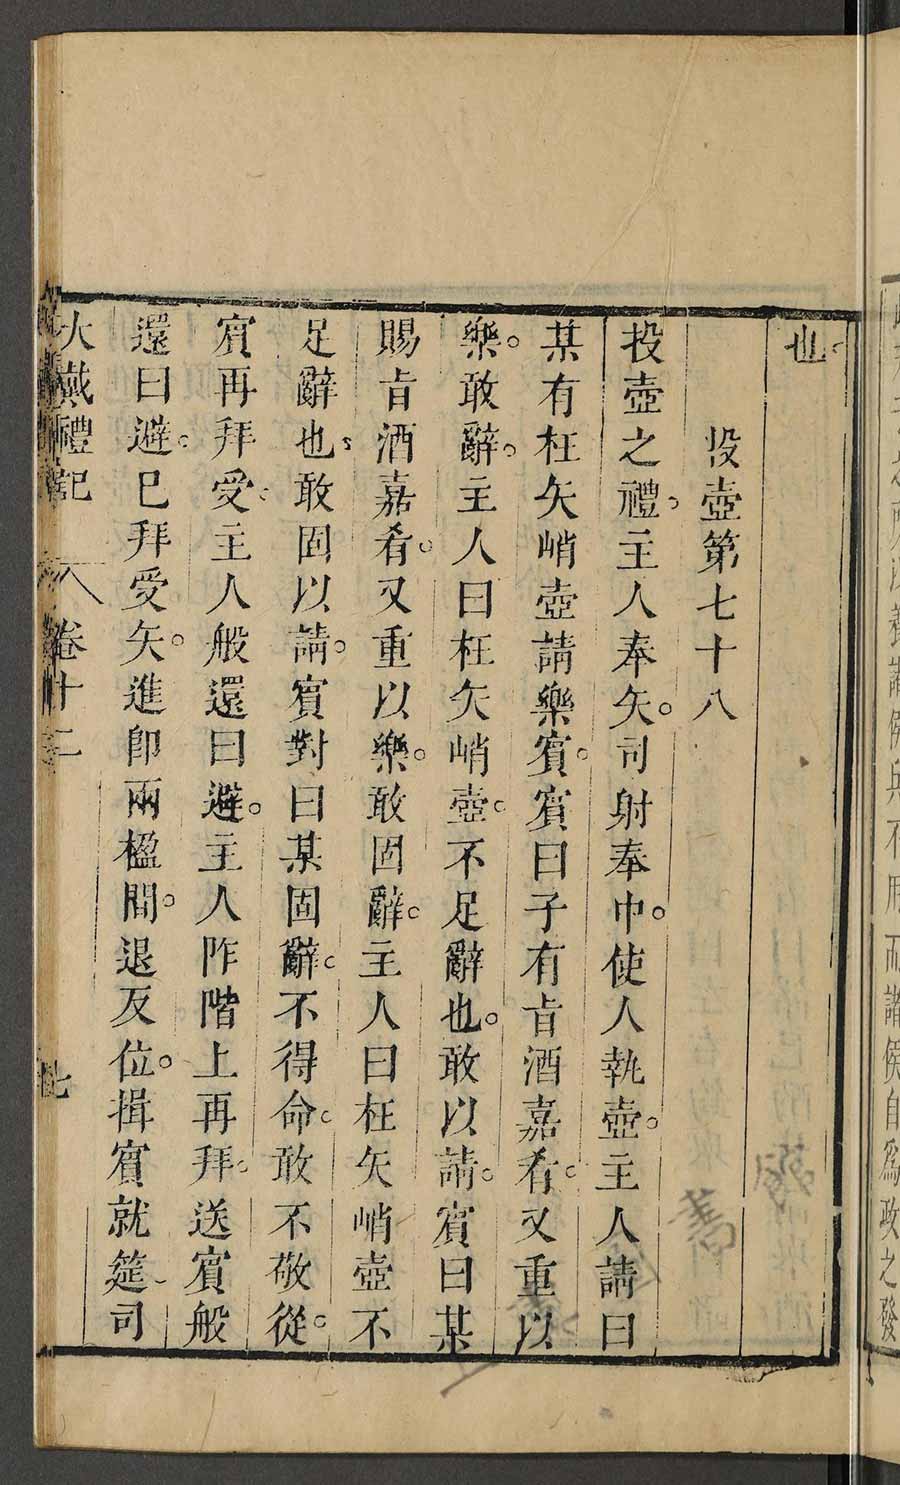 養諸侯兵不用而諸侯自爲政之
也。
投壺第七十八
投壺之禮。主人奉矢。司射奉中。使人執壺。主人請曰
某有枉矢峭壺請樂賓。賓曰子有旨酒嘉肴。又重以
樂。敢辭。主人曰枉矢峭壺。不足辭也。敢以請。賓曰某
賜旨酒嘉肴。又重以樂。敢固辭。主人曰枉矢峭壺不
足辭也。敢固以請。賓對曰某固辭。不得命。敢不敬從。
賓再拜受。主人般還曰避。主人阼階上再拜。送賓般
還曰避。已拜受矢。進卽兩楹間。退反位。揖賓就筵。司
大戴禮記 卷十二 七